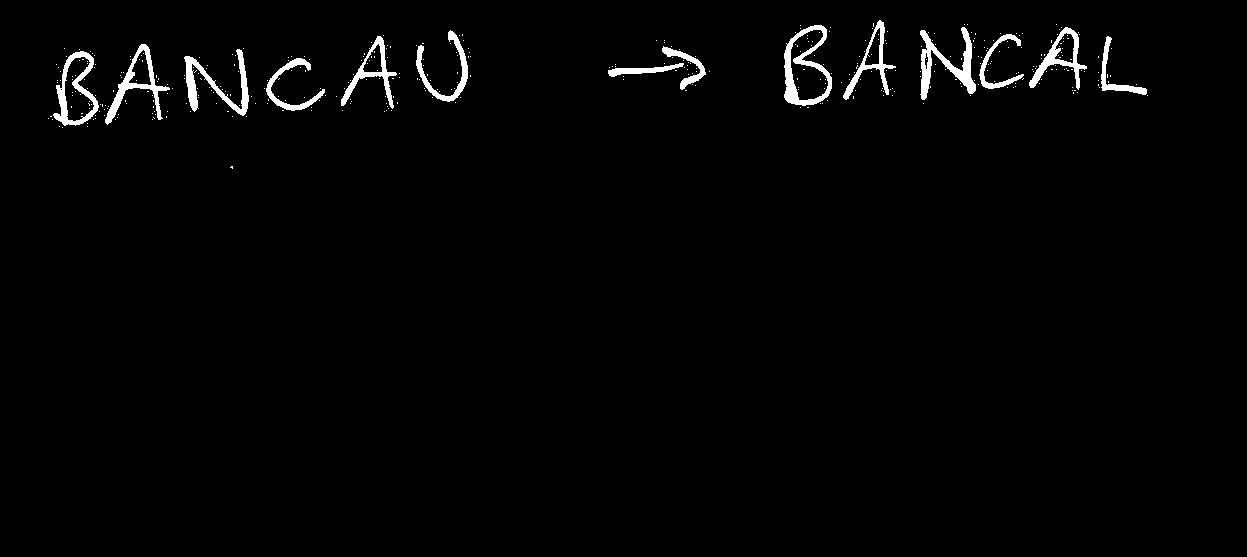 BANCAU → BANCAL